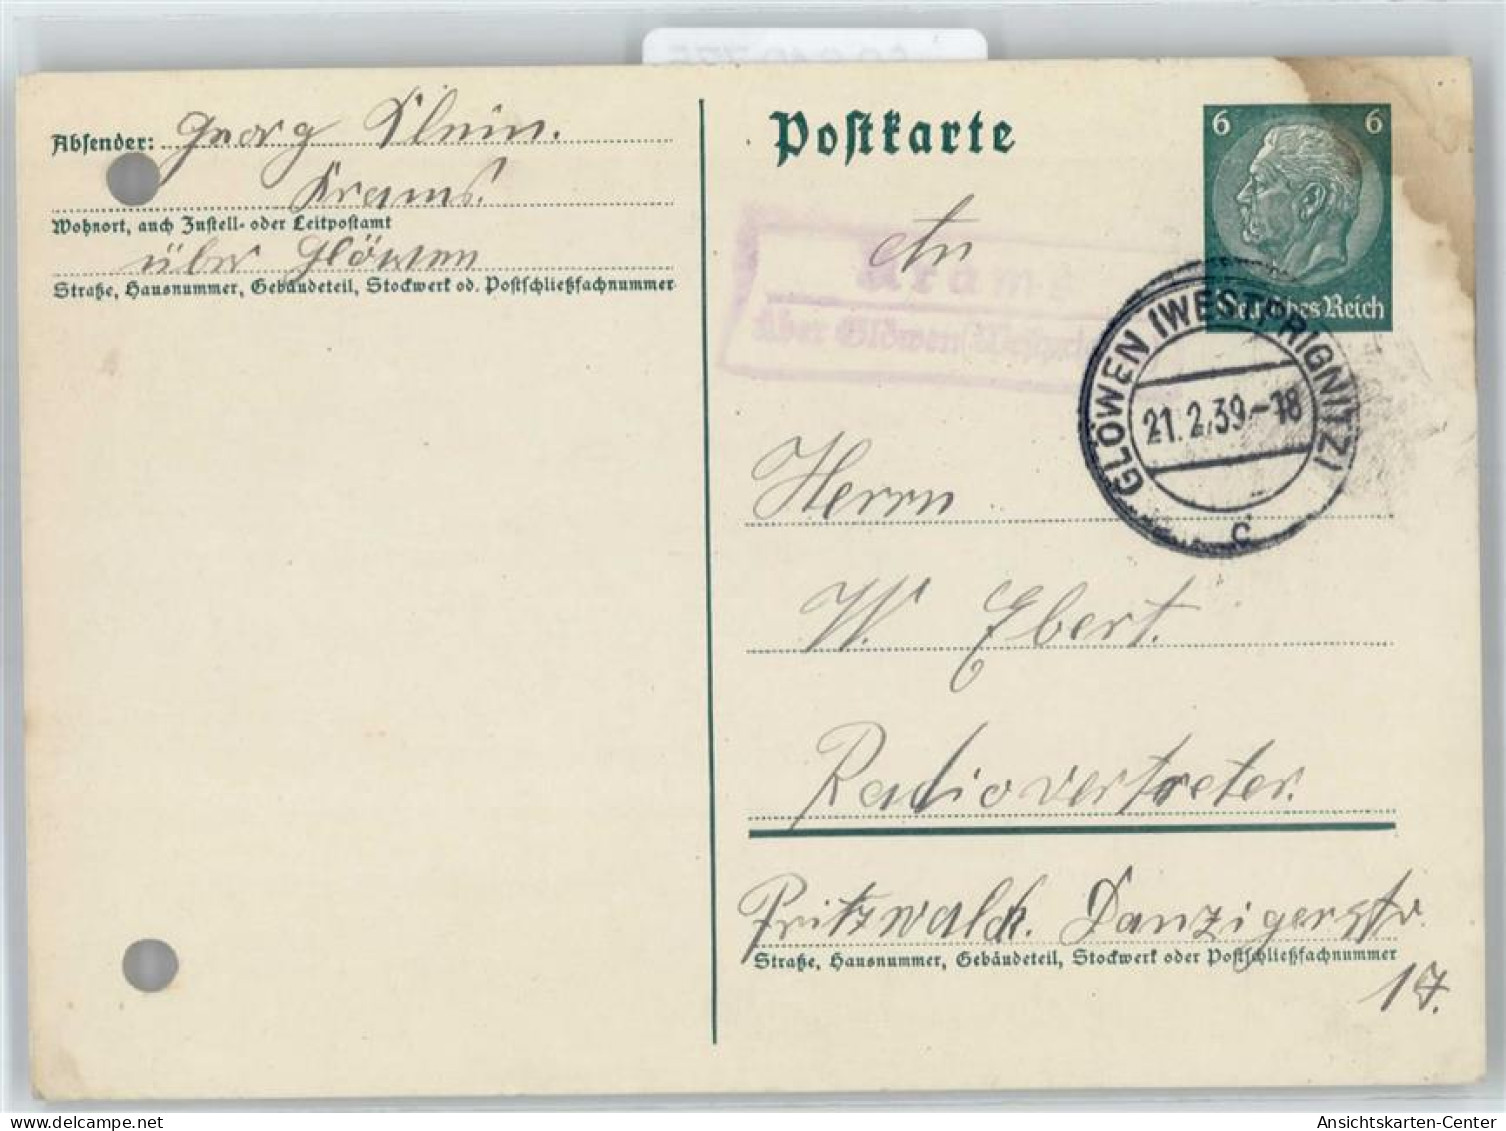 Absender: Georg Klein.
Krams.
Wohnort, auch Zustell- oder Leitpostamt
über Glöwen
Straße, Hausnummer, Gebäudeteil, Stockwerk od. Postschließfachnummer
Postkarte
6 6
Deutsches Reich
An
Krams
über Glöwen
GLÖWEN (WESTPRIGNITZ)
21.2.39.-18
c
Herrn
W. Ebert.
Radiovertreter.
Pritzwalk. Danzigerstr.
Straße, Hausnummer, Gebäudeteil, Stockwerk oder Postschließfachnummer
17.
Ansichtskarten-Center